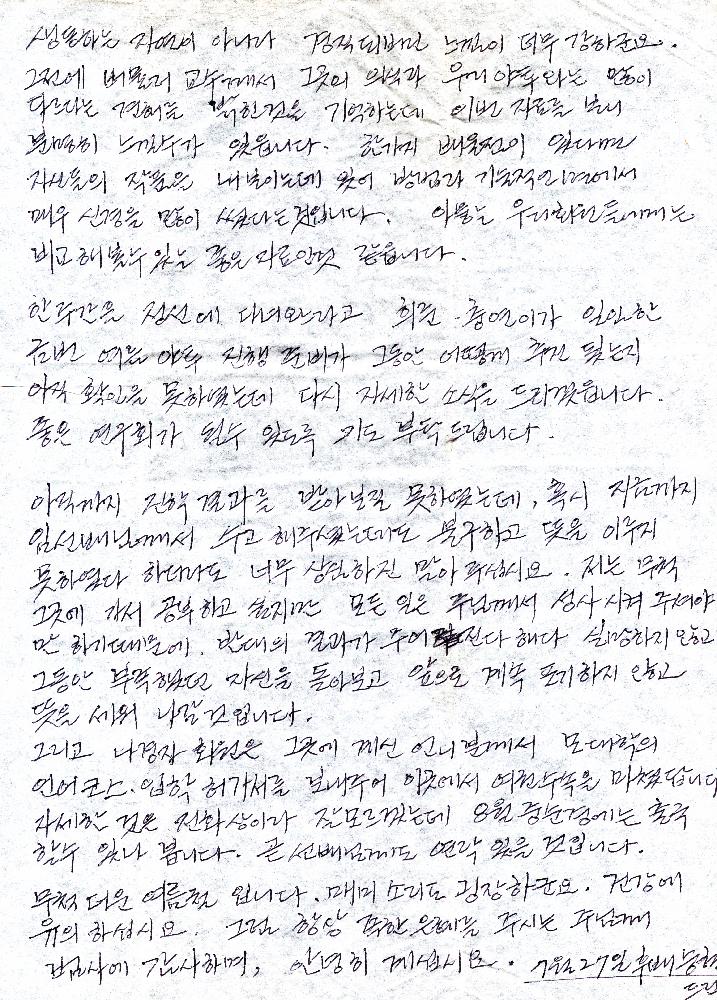 생동하는 자연이 아니라 경직되버린 느낌이 너무 강하군요.
그전에 교수께서 그곳의 의식과 우리 야투와는 많이
다르다는 견해를 밝힌것을 기억하는데 이번 자료를 보니
분명히 느낄수가 있읍니다. 한가지 배울점이 있다면
자신들의 작품을 내보이는데 있어 방법과 기술적인면에서
매우 신경을 많이 썼다는것입니다. 아뭏든 우리회원들에게는
비교해볼수있는 좋은 자료인것 같읍니다.
한주간을 정선에 다녀와라고 회원 이가
금번 여름 야투 진행 준비가 그동안 어떻게 추진 됬는지
아직 확인을 못하였는데 다시 자세한 소식을 드리겠읍니다.
좋은 연구회가 될수 있도록 기도 부탁 드립니다.
아직까지 진학 결과를 받아보질 못하였는데, 혹시 지금까지
임선배님께서 수고해주셨는데도 불구하고 뜻을 이루지
못하였다 하더라도 너무 상심하진 말아 주십시요. 저는 무척
그곳에 가서 공부하고 싶지만 모든 일은 주님께서 성사시켜 주셔야
만 하기때문에, 반대의 결과가 주어진다 해도 실망하지 않고
그동안 부족했던 자신을 돌아보고 앞으로 계속 포기하지 않고
뜻을 세워 나갈것입니다.
그리고 나경자 회원은 그곳에 계신 언니께서 모대학의
언어코스 입학 허가서를 보내주어 이곳에서 여권수속을 마쳤답니다
자세한 것은 전화상이라 잘모르겠는데 8월 중순경에는 출국
할수 있나 봅니다. 곧 선배님께도 연락 있을 것입니다.
무척 더운 여름철 입니다. 매미 소리도 굉장하군요. 건강에
유의 하십시요. 그럼 항상 귀한 은혜를 주시는 주님께
감사하며, 안녕히 계십시요. 7월27일 후배
드림